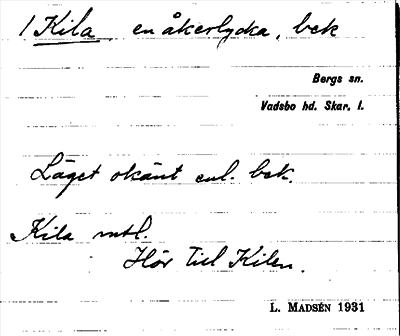 1 Kila, en åkerlycka, bek
Bergs sn.
Vadsbo hd. Skar. l.
Läget okänt enl. bek.
Kila mtl.
Hör till Kilen.
L. MADSÉN 1931